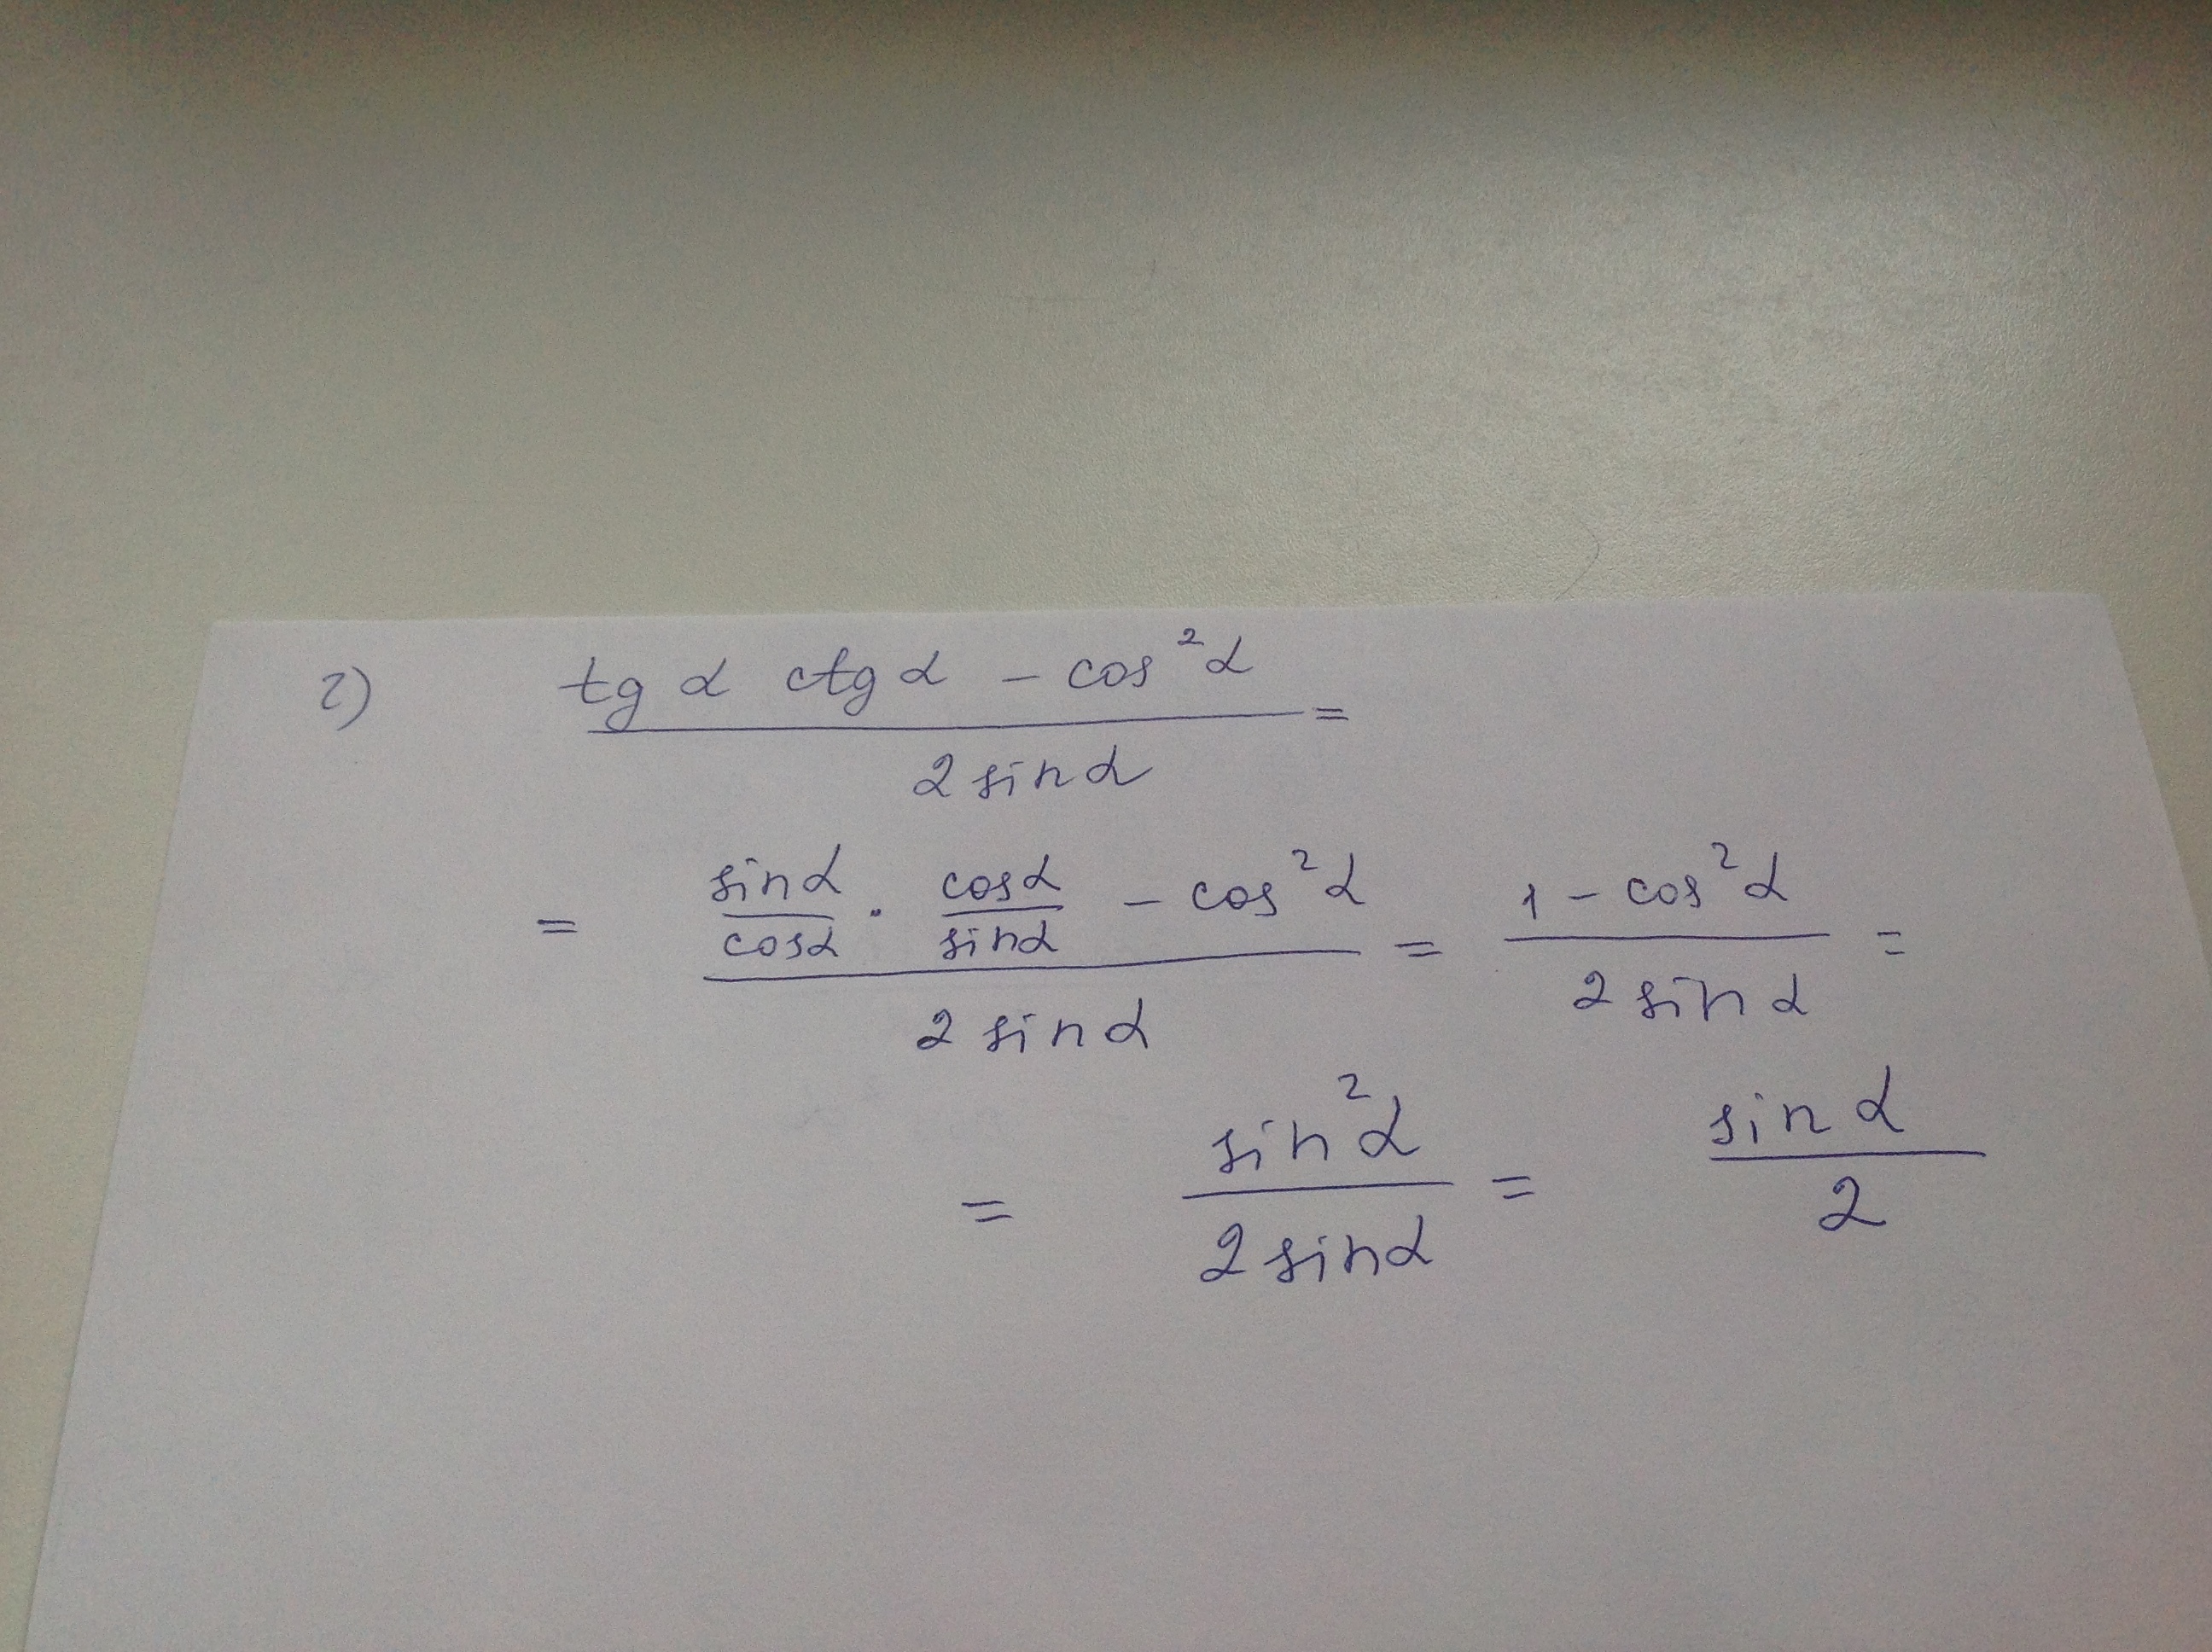 г) (tg α ctg α - cos²α) / (2 sin α) =
= (sin α / cos α · cos α / sin α - cos²α) / (2 sin α) = (1 - cos²α) / (2 sin α) =
= sin²α / (2 sin α) = sin α / 2